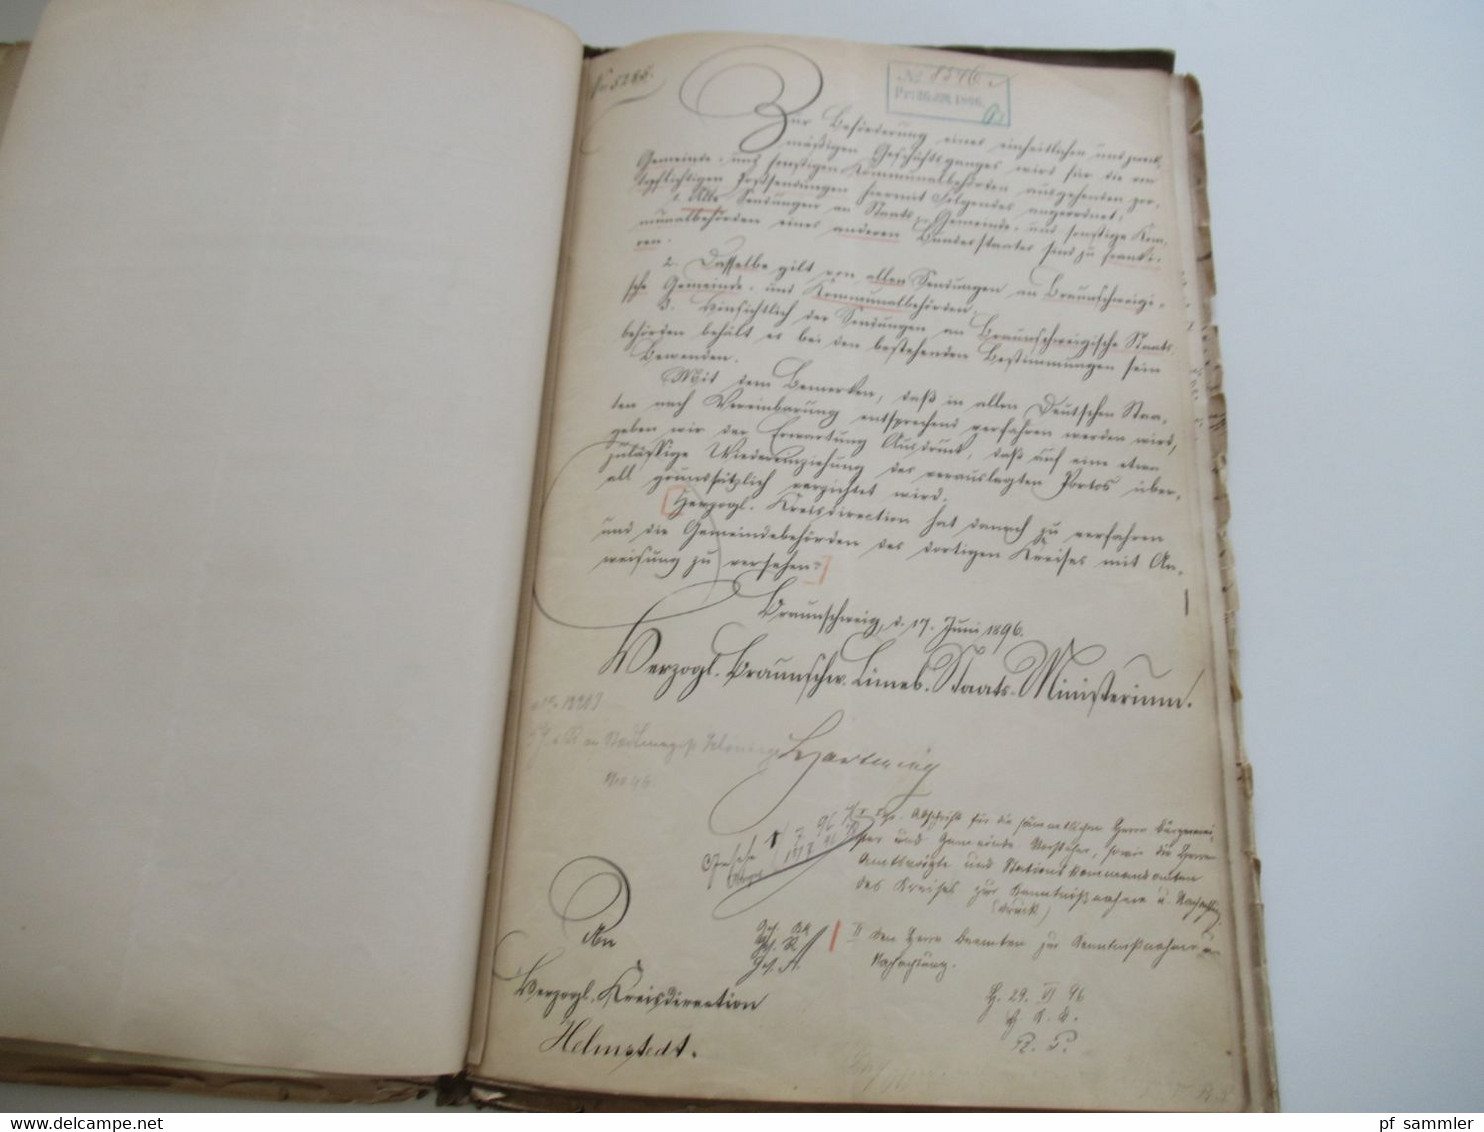 No 5285.
No 8376
Pr: 26. JUN. 1896.
Zur Beförderung eines einheitlichen und zweck-
mäßigen Geschäftsganges wird für die von
Gemeinde- und sonstigen Kommunalbehörden ausgehenden por-
topflichtigen Postsendungen hiermit Folgendes angeordnet:
1. Alle Sendungen an Staats-, Gemeinde- und sonstige Kom-
munalbehörden eines anderen Bundesstaates sind zu franki-
ren.
2. Dasselbe gilt von allen Sendungen an Braunschweigi-
sche Gemeinde- und Kommunalbehörden.
3. Hinsichtlich der Sendungen an Braunschweigische Staats-
behörden behält es bei den bestehenden Bestimmungen sein
Bewenden.
Mit dem Bemerken, daß in allen Deutschen Staa-
ten nach Vereinbarung entsprechend verfahren werden wird,
geben wir der Erwartung Ausdruck, daß auf eine etwa
zulässige Wiedereinziehung des verauslagten Portos über-
all grundsätzlich verzichtet wird.
Herzogl. Kreisdirection hat danach zu verfahren
und die Gemeindebehörden des dortigen Kreises mit An-
weisung zu versehen.
Braunschweig, d. 17. Juni 1896.
Herzogl. Braunschw. Lüneb. Staats-Ministerium.
Hartwieg
Abschrift für die sämmtlichen Herrn Bürgermei-
ster und Gemeinde Vorsteher, sowie die Herrn
Amtsvögte und Stationskommandanten
des Kreises zur Kenntnißnahme u. Nachachtung
(Druck)
II den Herrn Beamten zur Kenntnißnahme u.
Nachachtung.
H. 29. VI 96
An
Herzogl. Kreisdirection
Helmstedt.
www.delcampe.net
pf_sammler